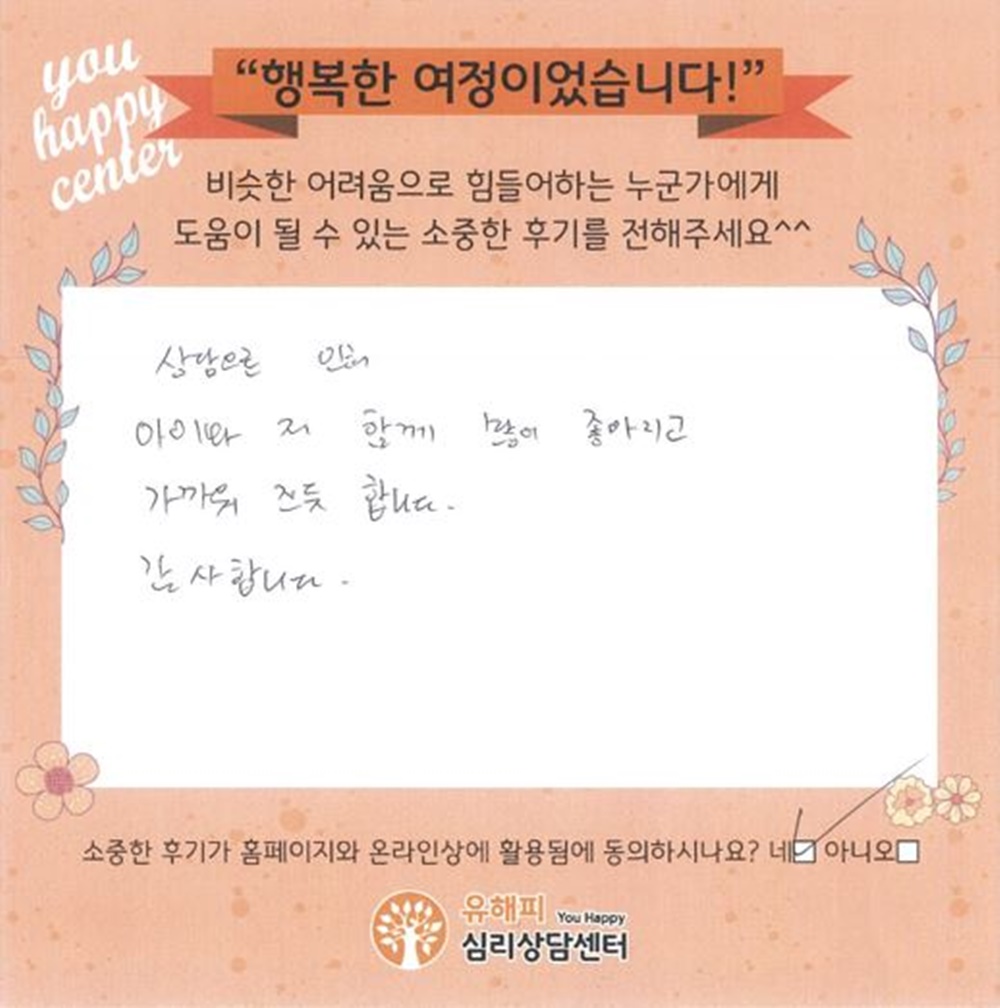 you
happy
center
“행복한 여정이었습니다!”
비슷한 어려움으로 힘들어하는 누군가에게
도움이 될 수 있는 소중한 후기를 전해주세요^^
상담으로 인해
아이와 저 함께 많이 좋아지고
가까워 진듯 합니다.
감사합니다.
소중한 후기가 홈페이지와 온라인상에 활용됨에 동의하시나요? 네☑ 아니오☐
유해피 You Happy
심리상담센터